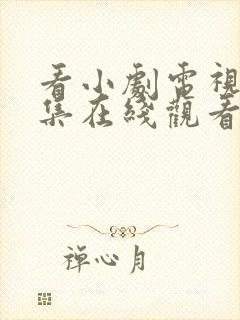 看小劇電視
集在綫觀看
禪心月